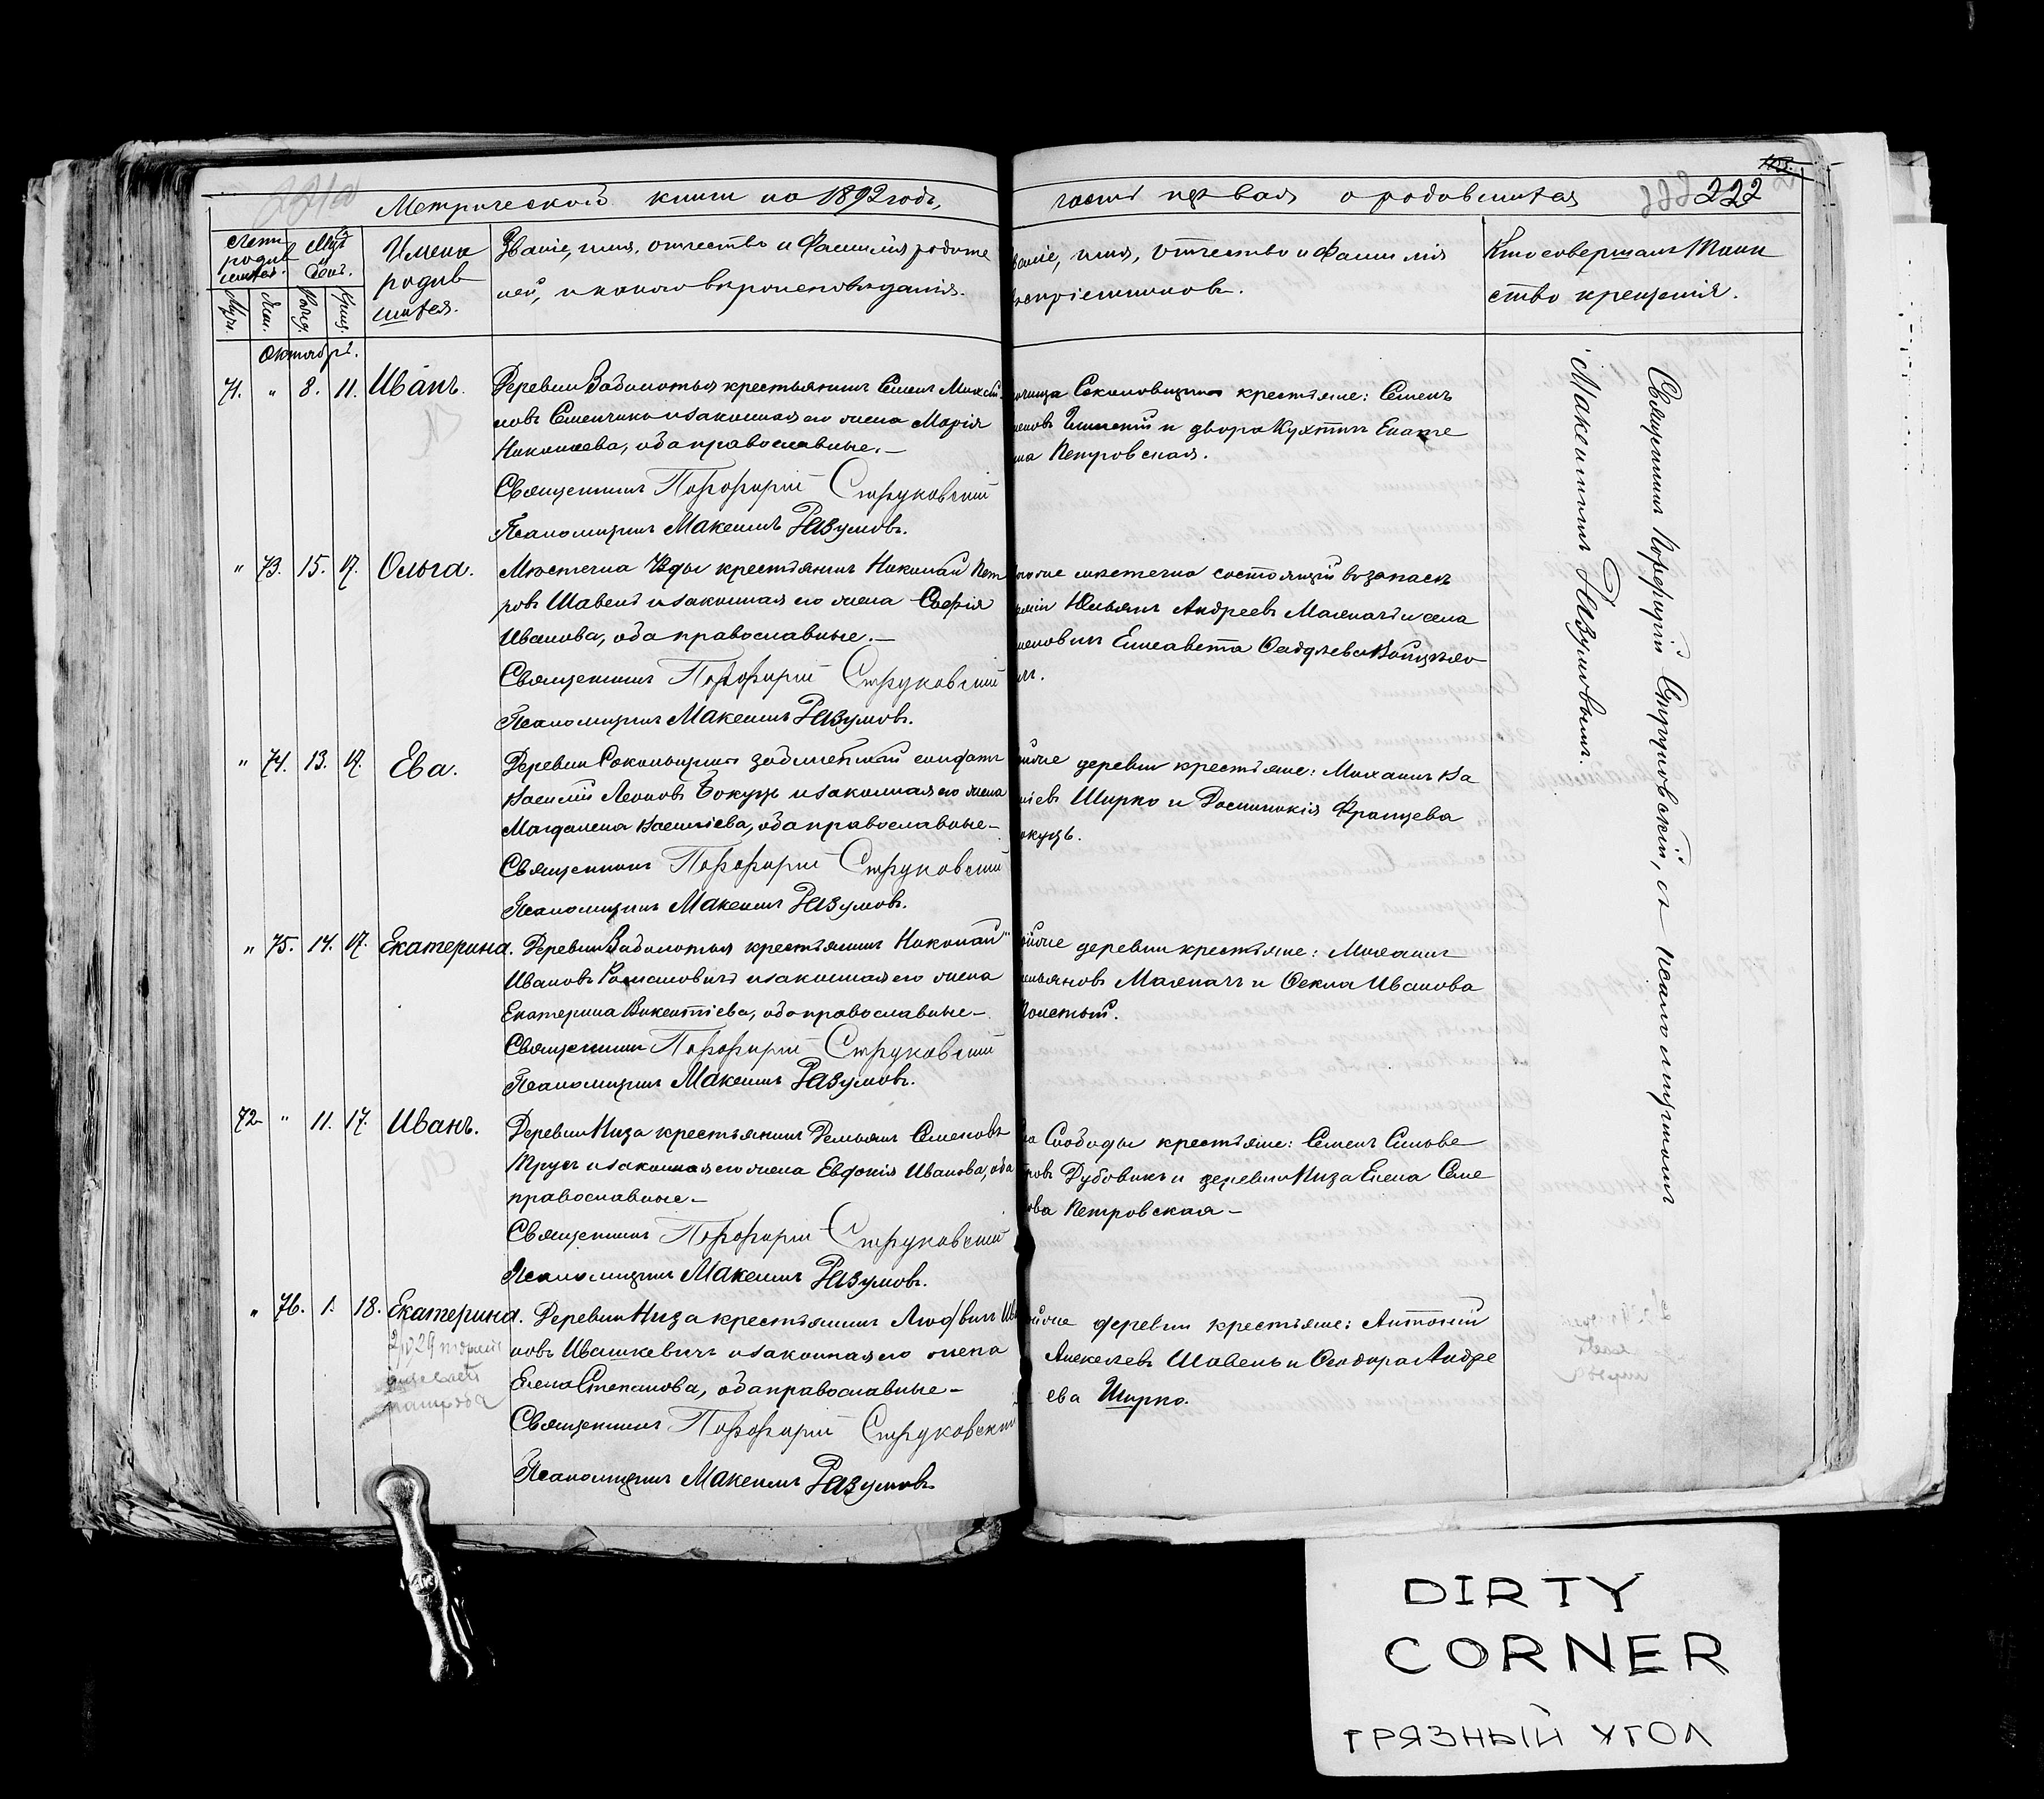 Метрической книги на 1892 годъ,
часть первая о родившихся
222
Счетъ родив шихся.
Мѣс. и день.
Имена родив шихся.
Званіе, имя, отчество и фамилія родите
лей, и какого вѣроисповѣданія.
Муж.
Жен.
Рожд.
Крещ.
Званіе, имя, отчество и фамилія
воспріемниковъ.
Кто совершалъ таин
ство крещенія.
Октябрь.
71. " 8. 11. Иванъ.
Деревни Заболотья крестьянинъ Семенъ
новъ Семенчико и законная его жена Марія
Николаева, оба православные.—
Священникъ Порфирій Струковскій
Псаломщикъ Максимъ Разумовъ.
крестьяне: Семенъ
и двора Кухтичъ Екате
Петровская.
" 73. 15. 17. Ольга.
Мѣстечка Узды крестьянинъ Николай Пет
ровъ Шавель и законная его жена Софія
Иванова, оба православные.—
Священникъ Порфирій Струковскій
Псаломщикъ Максимъ Разумовъ.
мѣстечка состоящій въ запасѣ
Андреевъ и села
Елисавета
" 74. 13. 17. Ева.
Деревни солдатъ
Василій Леоновъ Бокуць и законная его жена
Магдалена Василіева, оба православные—
Священникъ Порфирій Струковскій
Псаломщикъ Максимъ Разумовъ.
деревни крестьяне: Михаилъ Ва
Ширко и Францева
" 75. 14. 17. Екатерина.
Деревни Заболотья крестьянинъ Николай
Ивановъ Романовичъ и законная его жена
Екатерина Викентіева, оба православные—
Священникъ Порфирій Струковскій
Псаломщикъ Максимъ Разумовъ.
деревни крестьяне: Михаилъ
и Ѳекла Иванова
72. " 11. 17. Иванъ.
Деревни Низа крестьянинъ Демьянъ Семеновъ
Трусъ и законная его жена Евдокія Иванова, оба
православные—
Священникъ Порфирій Струковскій
Псаломщикъ Максимъ Разумовъ.
Слободы крестьяне: Семенъ Сильве
Дубовикъ и деревни Низа Елена Семе
Петровская—
" 76. 1. 18. Екатерина.
Деревни Низа крестьянинъ Людвикъ Ива
новъ Ивашкевичъ и законная его жена
Елена Степанова, оба православные—
Священникъ Порфирій Струковскій
Псаломщикъ Максимъ Разумовъ
деревни крестьяне: Антоній
Алексѣевъ Шавель и Ѳеодора Андре
ева Ширко.
Священникъ Порфирій Струковскій, съ псаломщикомъ
Максимомъ Разумовымъ.
DIRTY
CORNER
ГРЯЗНЫЙ УГОЛ